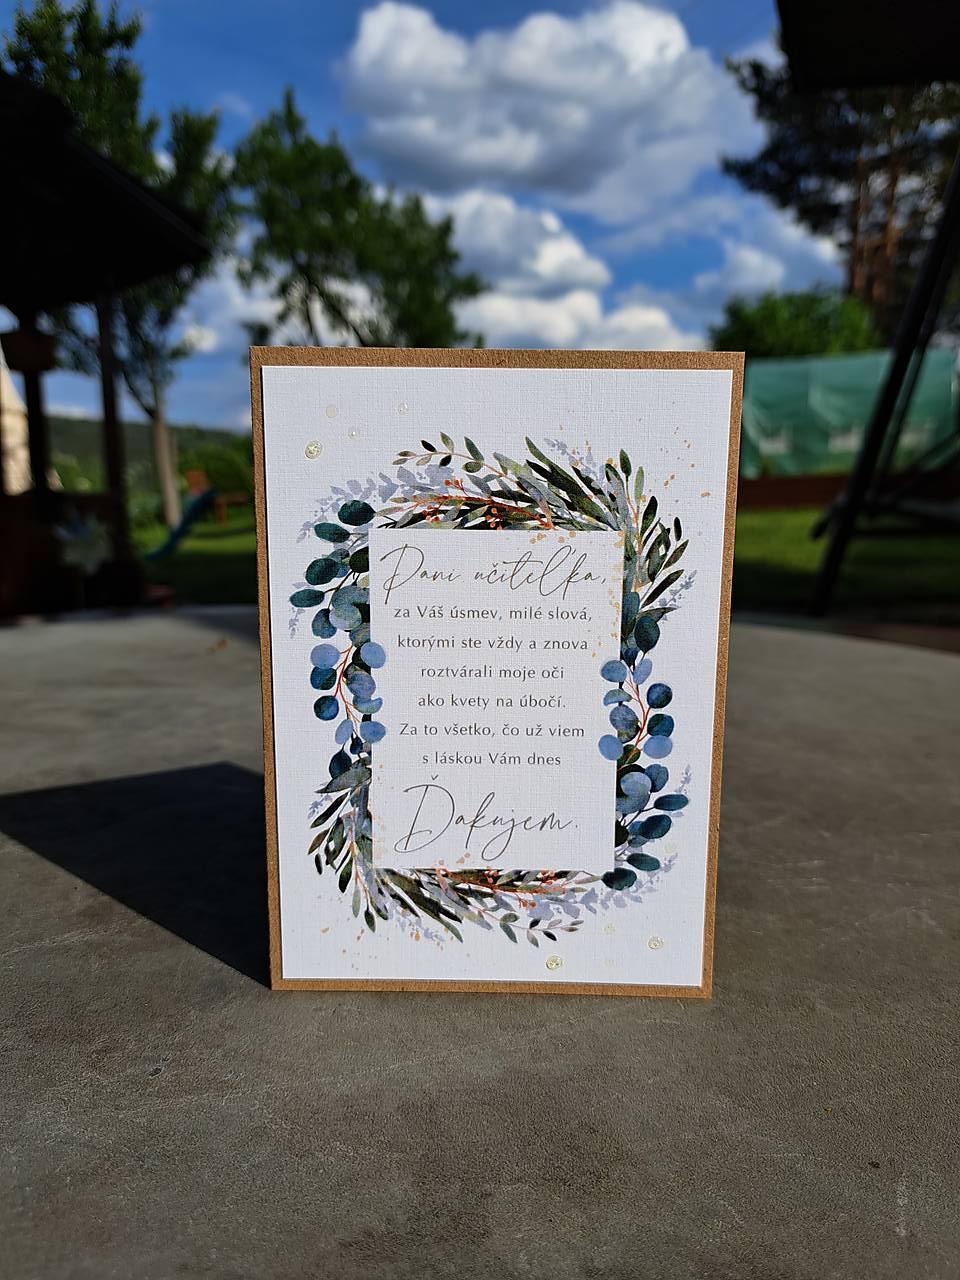 Pani učiteľka,
za Váš úsmev, milé slová,
ktorými ste vždy a znova
roztvárali moje oči
ako kvety na úbočí.
Za to všetko, čo už viem
s láskou Vám dnes
Ďakujem.